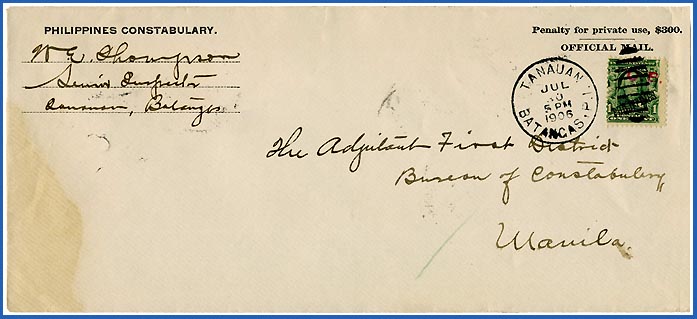 PHILIPPINES CONSTABULARY.
W E. Thompson
Senior Inspector
Tanauan, Batangas
Penalty for private use, $300.
OFFICIAL MAIL.
TANAUAN
JUL
30
5 PM
1906
BATANGAS, P.I.
The Adjutant First District
Bureau of Constabulary
Manila.